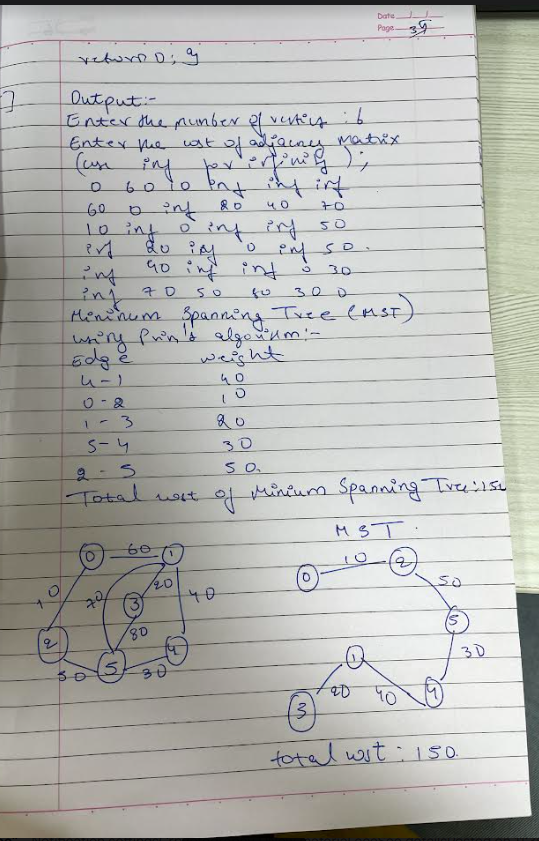 Date / /
Page 35
return 0; }
Output:-
Enter the number of vertices : 6
Enter the cost of adjacency matrix
(use inf for infinity);
0 60 10 inf inf inf
60 0 inf 20 40 70
10 inf 0 inf inf 50
inf 20 inf 0 inf 50.
inf 40 inf inf 0 30
inf 70 50 80 30 0
Mininum Spanning Tree (MST)
using Prim's algorithm:-
Edge weight
4-1 40
0-2 10
1-3 20
5-4 30
2-5 50.
Total cost of Minium Spanning Tree:150
MST.
0 60 1
10 70 20 40
3
80
2 5 4
50 30
0 10 2
50
5
30
1
3 20 40 4
total cost : 150.